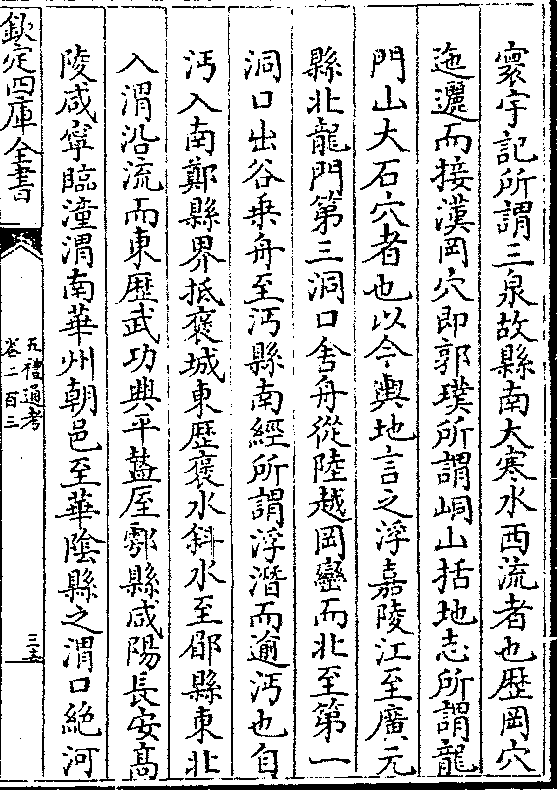 寰宇記所謂三泉故縣南大寒水西流者也歴岡穴
迤邐而接漢岡穴即郭璞所謂峒山括地志所謂龍
門山大石穴者也以今輿地言之浮嘉陵江至廣元
縣北龍門第三洞口舍舟從陸越岡巒而北至第一
洞口出谷乗舟至沔縣南經所謂浮潛而逾沔也自
沔入南鄭縣界抵褒城東歴褒水斜水至郿縣東北
入渭沿流而東歴武功興平盩厔鄠縣咸陽長安髙
陵咸寧臨潼渭南華州朝邑至華陰縣之渭口絶河
欽定四庫全書
五禮通考
卷二百三
三五